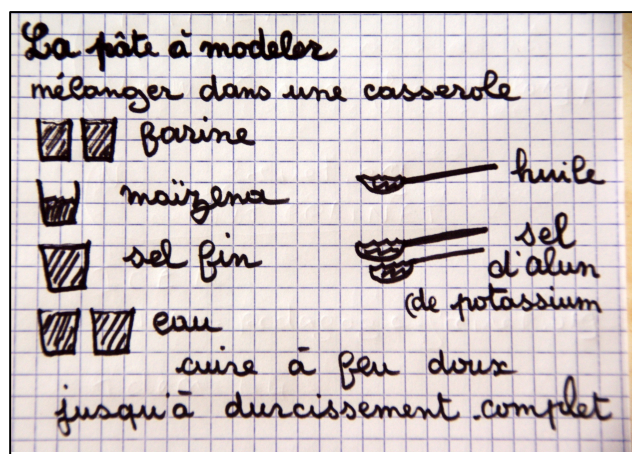 La pâte à modeler
mélanger dans une casserole
farine
huile
maïzena
sel fin
sel
d'alun
(de potassium
eau
cuire à feu doux
jusqu'à durcissement complet